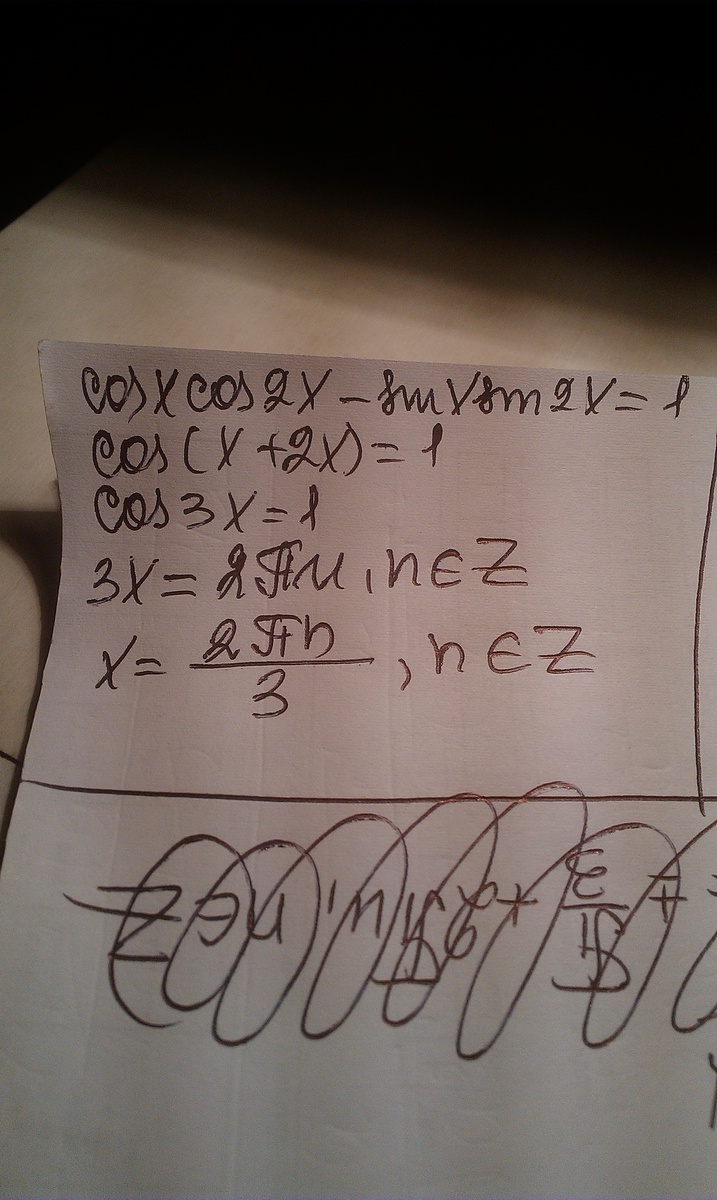 cosx cos2x - sinx sin2x = 1
cos(x + 2x) = 1
cos3x = 1
3x = 2πn, n ∈ Z
x = 2πn/3, n ∈ Z
± π/3 + 2πn, n ∈ Z